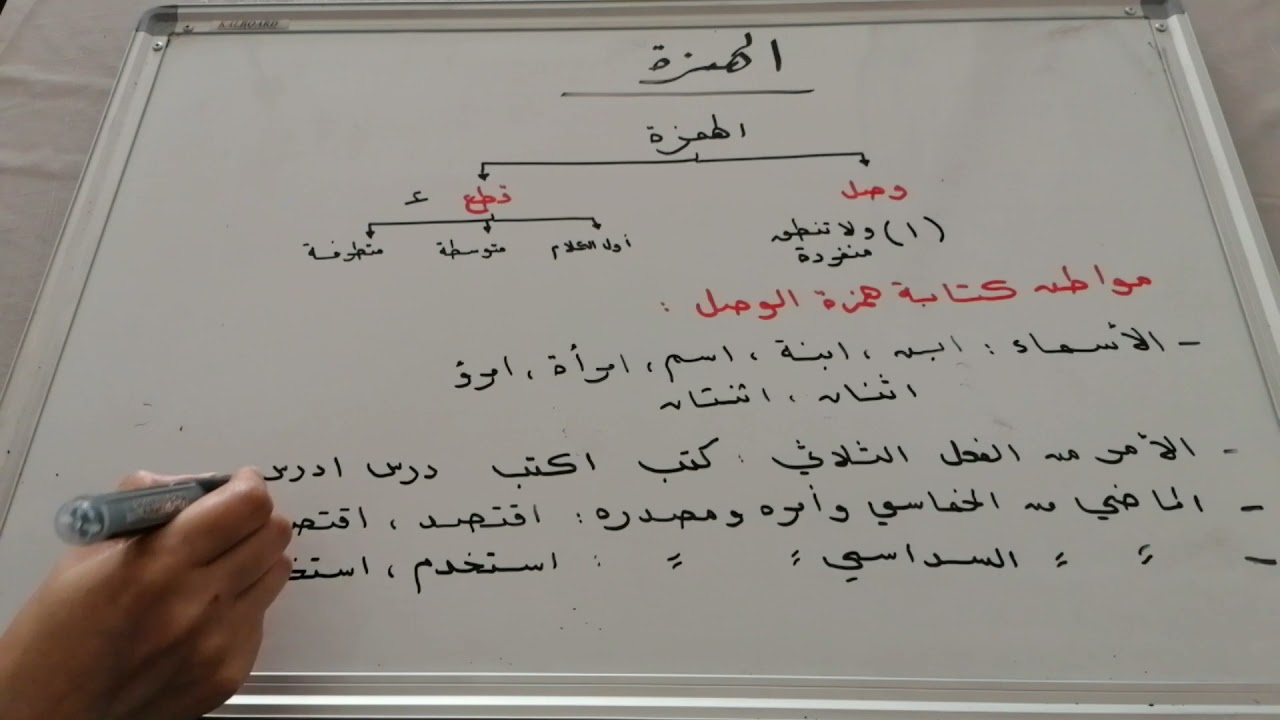 KALBOARD
الهمزة
الهمزة
وصل
قطع ء
(ا) ولا تنطق
منفردة
أول الكلام متوسطة متطرفة
مواطن كتابة همزة الوصل :
- الأسماء : ابن ، ابنة ، اسم ، امرأة ، امرؤ
اثنان ، اثنتان
- الأمر من الفعل الثلاثي : كتب اكتب درس ادرس
- الماضي من الخماسي وأمره ومصدره : اقتصد ،
- 〃 〃 السداسي 〃 〃 : استخدم ،